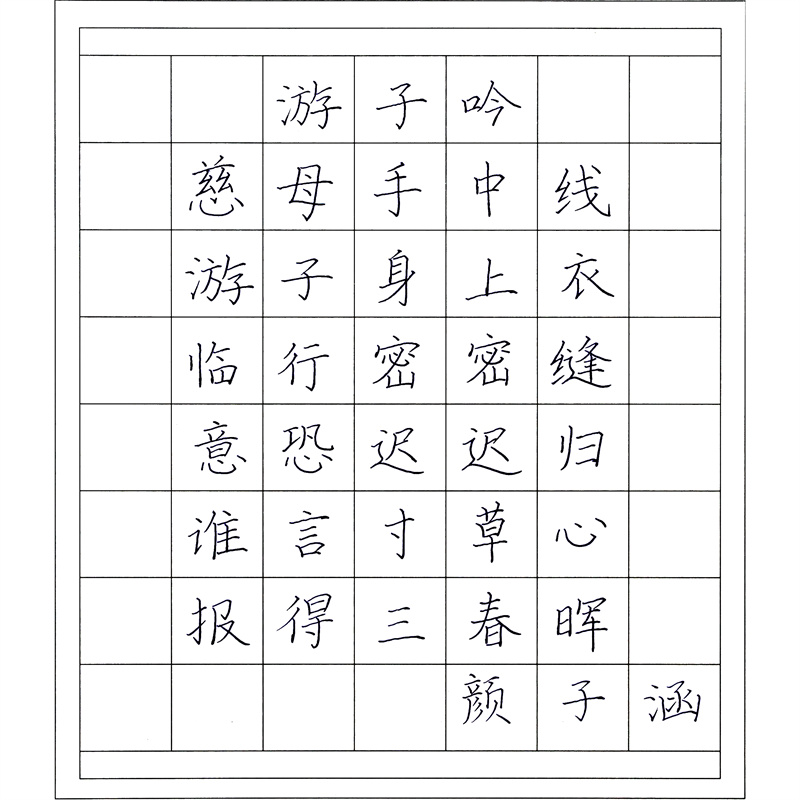 游子吟
慈母手中线
游子身上衣
临行密密缝
意恐迟迟归
谁言寸草心
报得三春晖
颜子涵